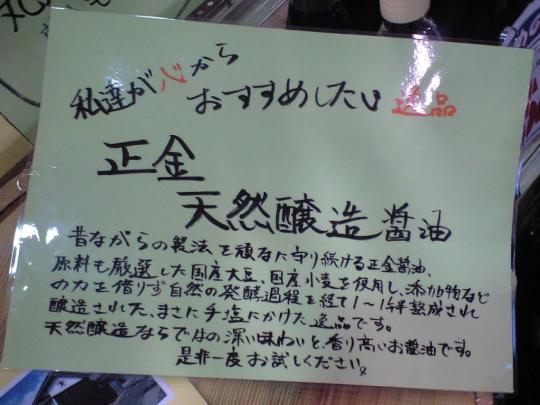 私達が心から
おすすめしたい逸品
正金
天然醸造醤油
昔ながらの製法を頑なに守り続ける正金醤油、
原料も厳選した国産大豆、国産小麦を使用し、添加物など
の力を借りず自然の発酵過程を経て1〜1年半熟成され
醸造された、まさに手塩にかけた逸品です。
天然醸造ならではの深い味わいと香り高いお醤油です。
是非一度お試しください。